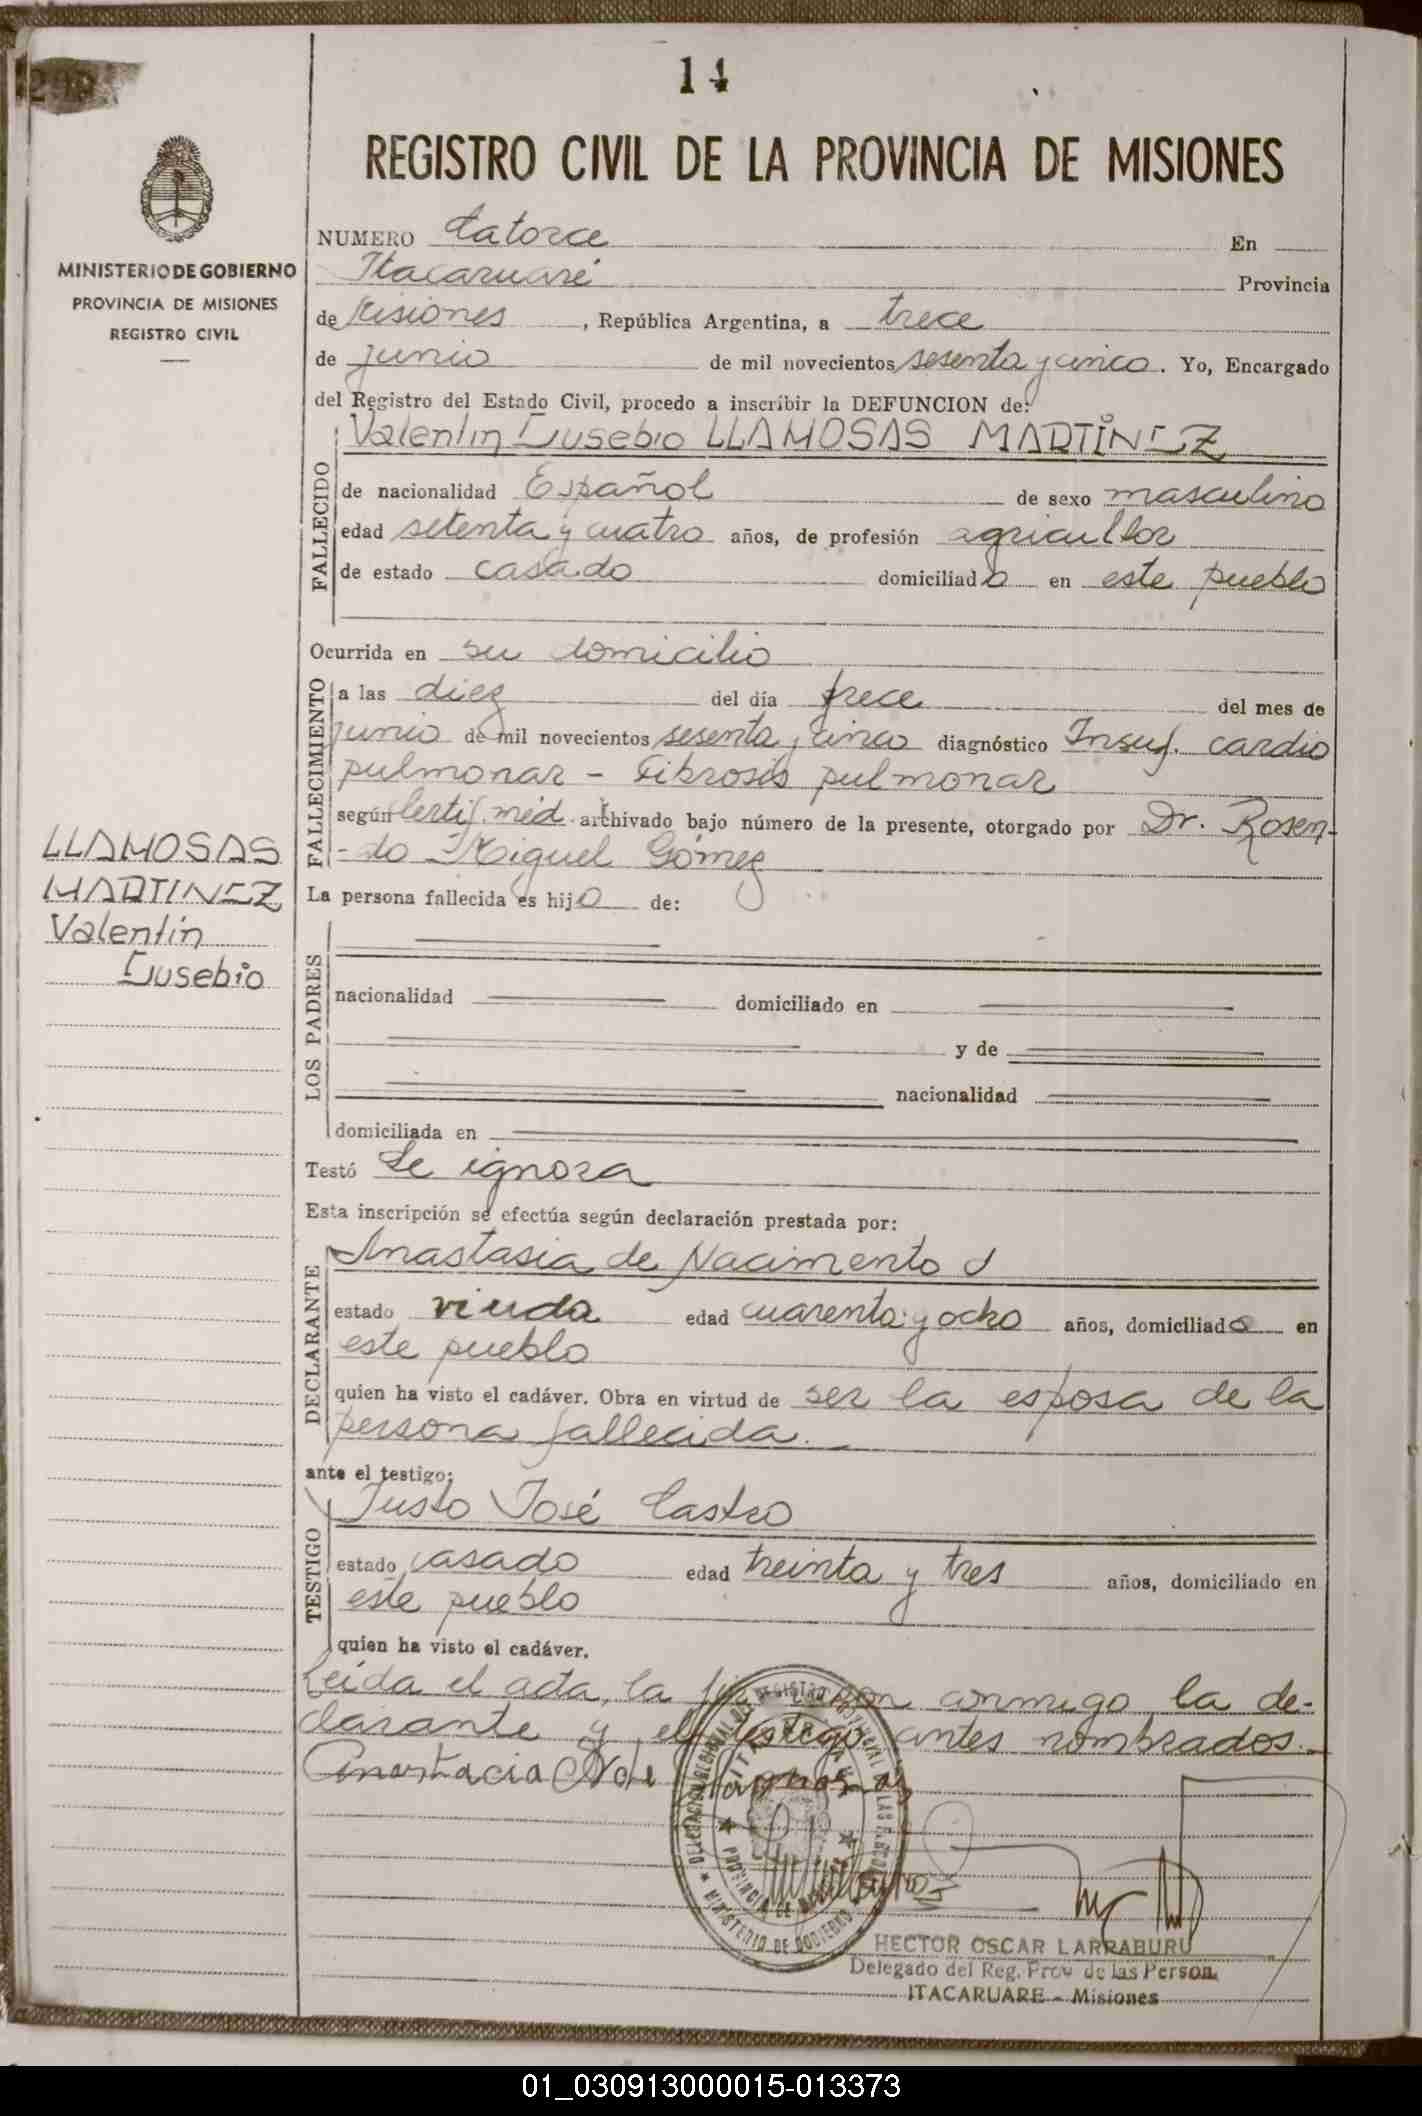 14
REGISTRO CIVIL DE LA PROVINCIA DE MISIONES
MINISTERIO DE GOBIERNO
PROVINCIA DE MISIONES
REGISTRO CIVIL
NUMERO Catorce En
Itacaruaré Provincia
de Misiones, República Argentina, a trece
de junio de mil novecientos sesenta y cinco. Yo, Encargado
del Registro del Estado Civil, procedo a inscribir la DEFUNCION de:
Valentin Eusebio LLAMOSAS MARTINEZ
FALLECIDO
de nacionalidad Español de sexo masculino
edad setenta y cuatro años, de profesión agricultor
de estado casado domiciliado en este pueblo
Ocurrida en su domicilio
FALLECIMIENTO
a las diez del día trece del mes de
junio de mil novecientos sesenta y cinco diagnóstico Insuf. cardio
pulmonar - Fibrosis pulmonar
según Certif. méd. archivado bajo número de la presente, otorgado por Dr. Rosen-
-do Miguel Gómez
LLAMOSAS
MARTINEZ
Valentin
Eusebio
La persona fallecida es hijo de:
LOS PADRES
nacionalidad domiciliado en
y de
nacionalidad
domiciliada en
Testó Se ignora
Esta inscripción se efectúa según declaración prestada por:
DECLARANTE
Anastasia de Nacimento
estado viuda edad cuarenta y ocho años, domiciliada en
este pueblo
quien ha visto el cadáver. Obra en virtud de ser la esposa de la
persona fallecida.
ante el testigo:
TESTIGO
Justo José Castro
estado casado edad treinta y tres años, domiciliado en
este pueblo
quien ha visto el cadáver.
Leida el acta, la firman conmigo la de-
clarante y el testigo antes nombrados.
Anastacia
MINISTERIO DE GOBIERNO
HECTOR OSCAR LARRABURU
Delegado del Reg. Prov de las Person.
ITACARUARE - Misiones
01_030913000015-013373